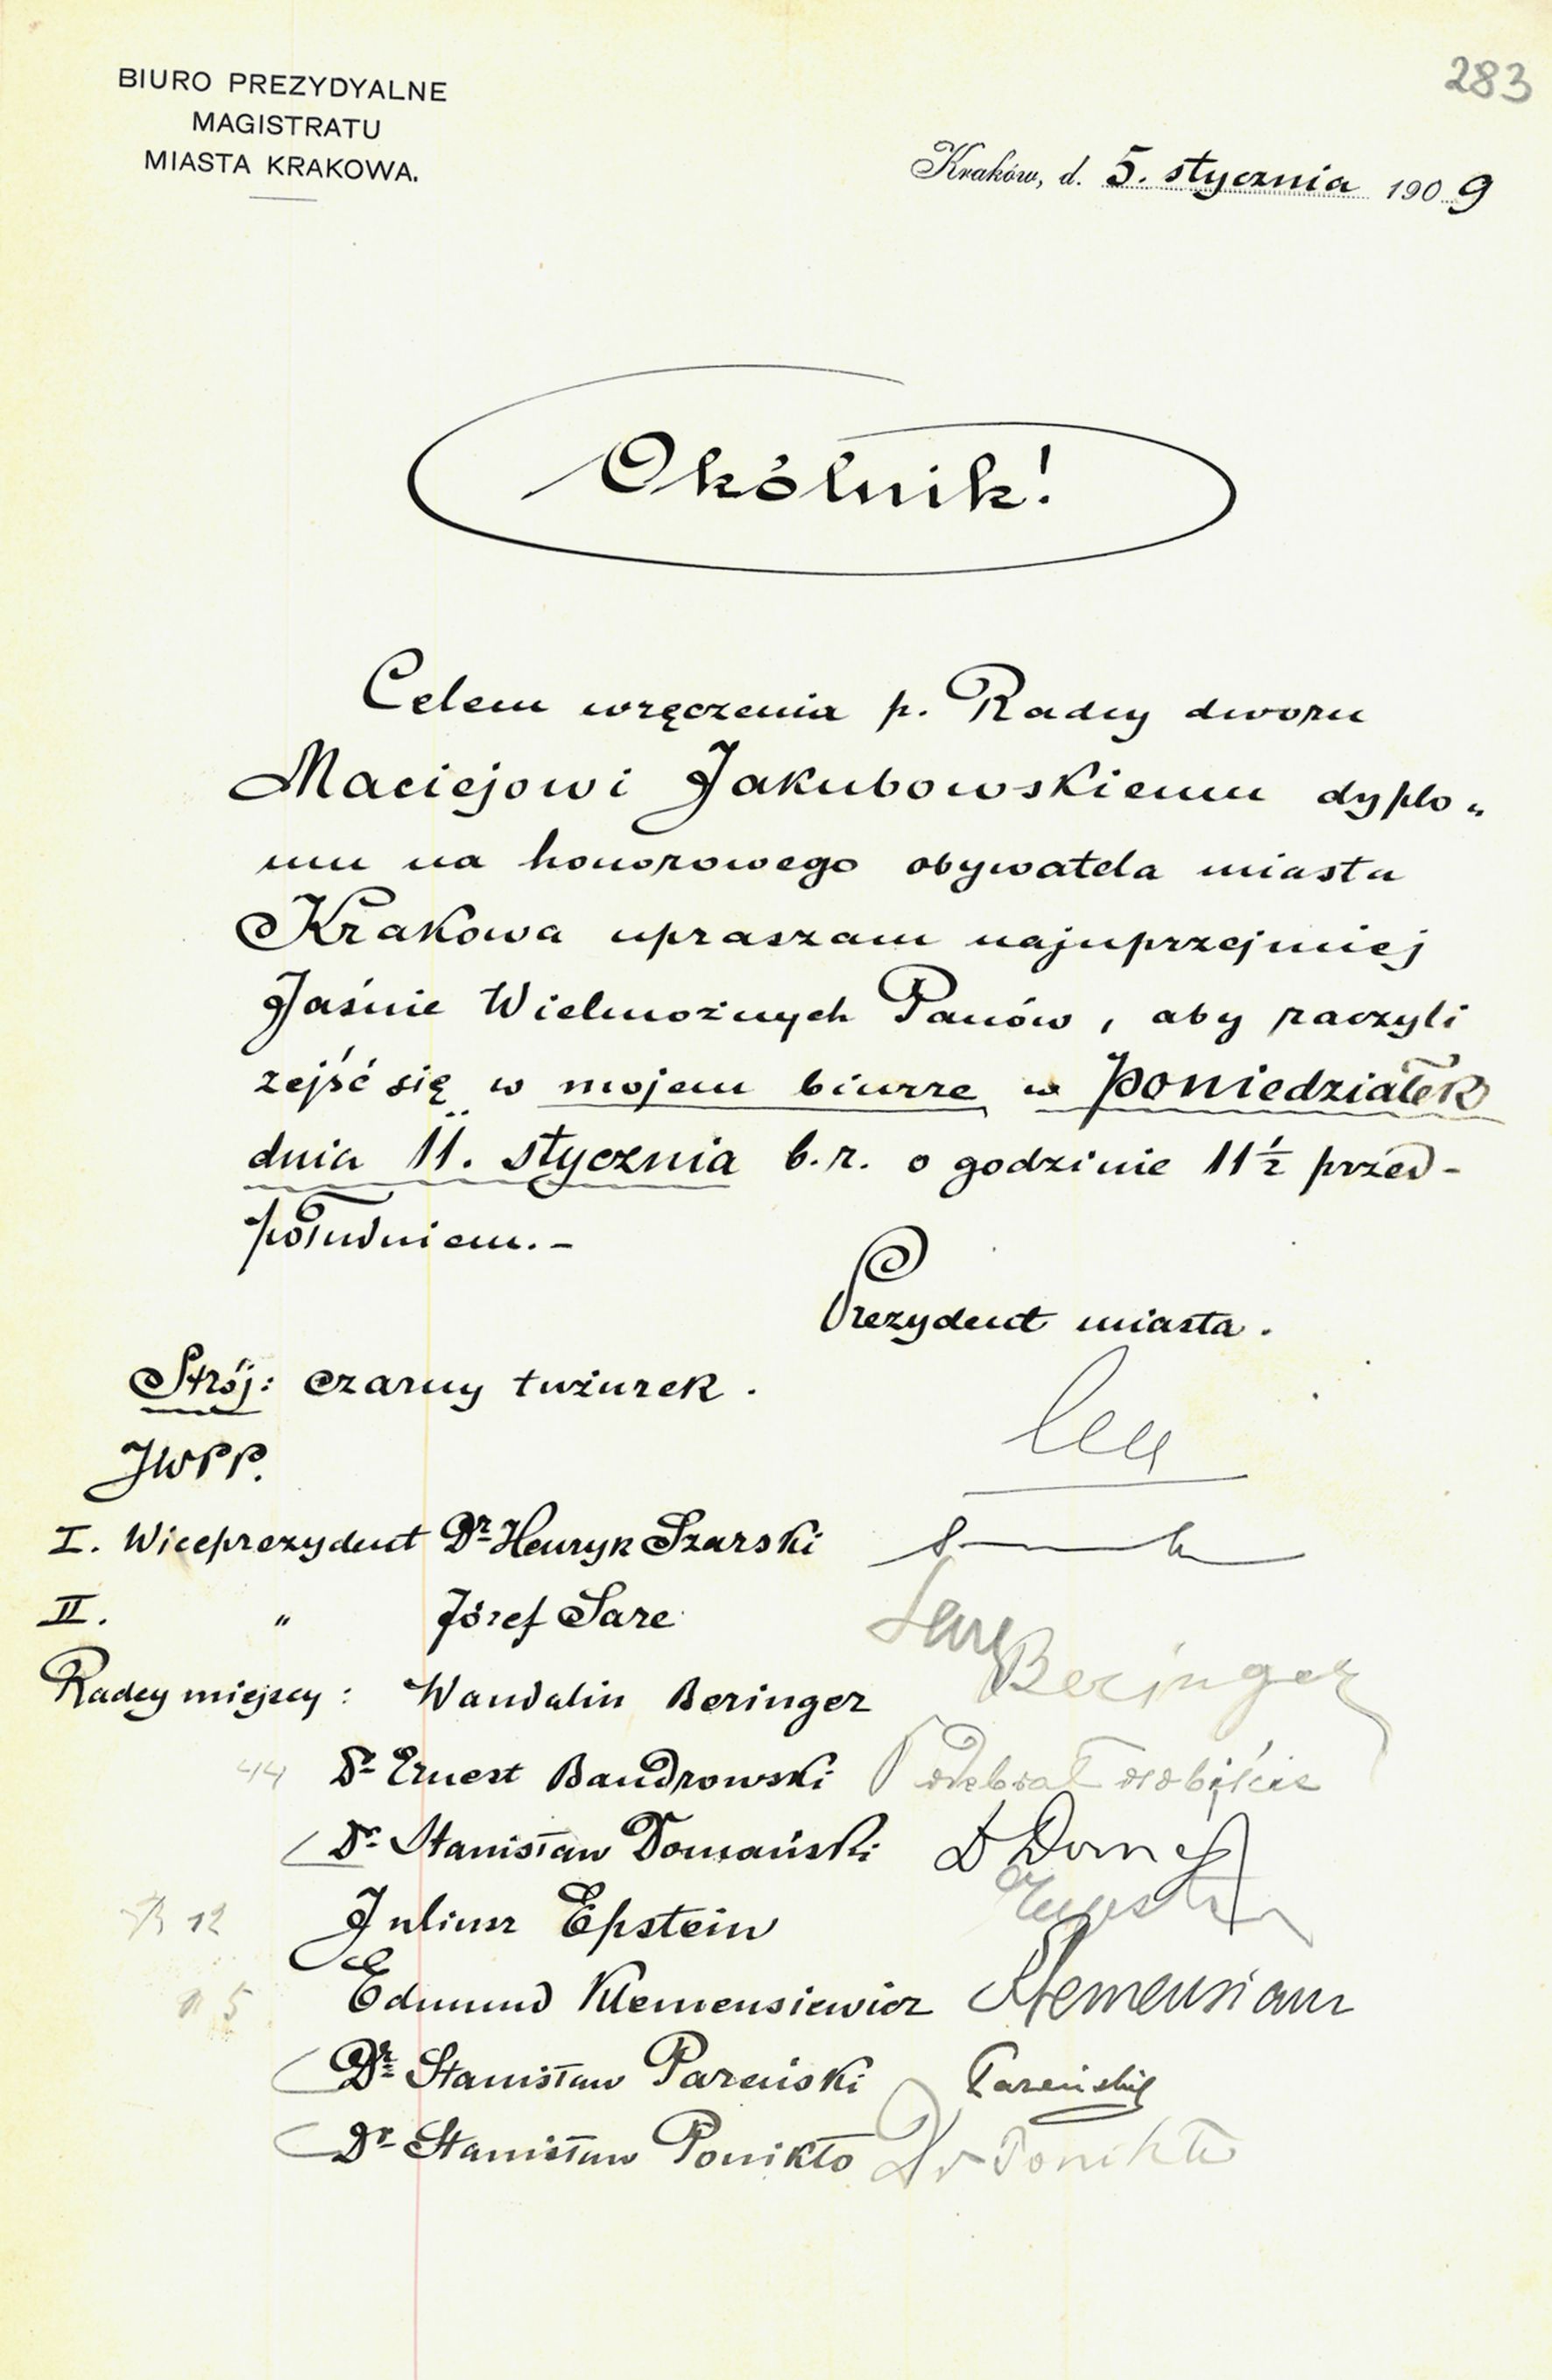 283
BIURO PREZYDYALNE
MAGISTRATU
MIASTA KRAKOWA.
Kraków, d. 5. stycznia 1909
Okólnik!
Celem wręczenia p. Radcy dworu
Maciejowi Jakubowskiemu dyplo„
mu na honorowego obywatela miasta
Krakowa upraszam najuprzejmiej
Jaśnie Wielmożnych Panów, aby raczyli
zejść się w mojem biurze w poniedziałek
dnia 11. stycznia b.r. o godzinie 11½ przed-
południem.-
Prezydent miasta.
Strój: czarny tużurek.
Leo
JWPP.
I. Wiceprezydent Dr Henryk Szarski
II. " Józef Sare Sare
Radcy miejscy: Wandalin Beringer Beringer
44 Dr Ernest Bandrowski Odebrał osobiście
Dr Stanisław Domański D Doma
12 Juliusz Epstein Epstein
5 Edmund Klemensiewicz Klemensiewicz
Dr Stanisław Pareński Pareński
Dr Stanisław Ponikło Dr Ponikło